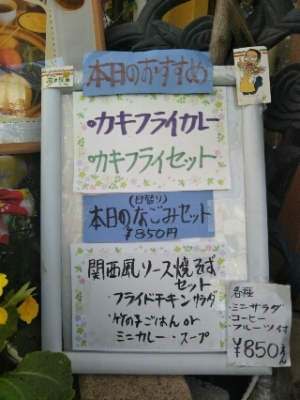 本日のおすすめ
カキフライカレー
カキフライセット
(日替り)
本日のなごみセット
¥850円
関西風ソース焼そば
セット
フライドチキンサラダ
竹の子ごはんor
ミニカレー・スープ
各種
・ミニサラダ
・コーヒー
・フルーツ付
¥850